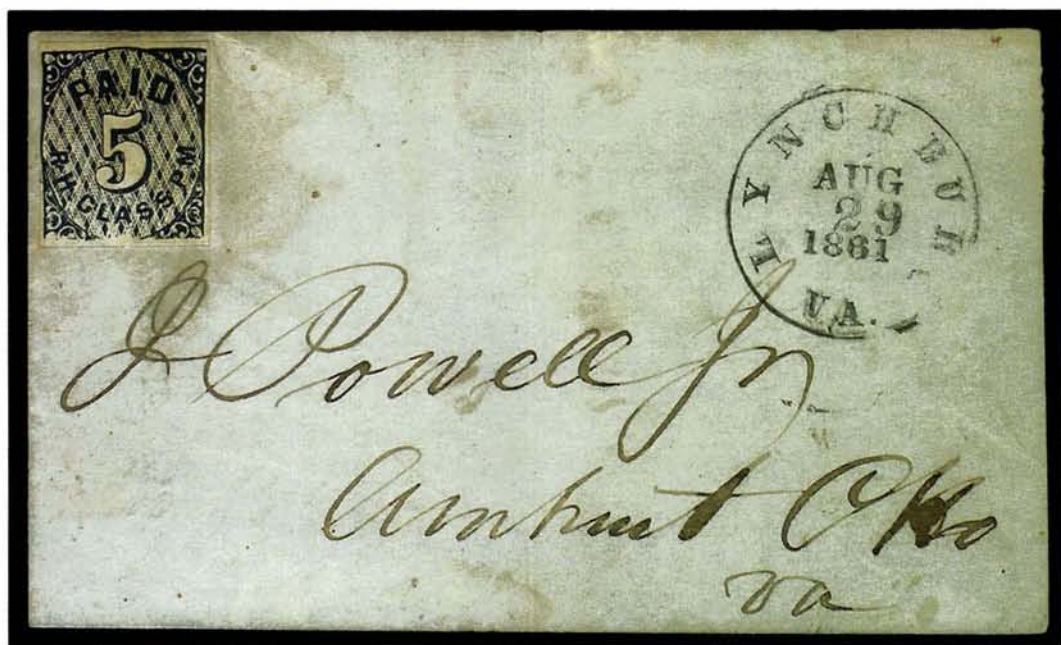 PAID
5
R.H. GLASS. P.M.
LYNCHBURG
AUG
29
1861
VA.
J Powell Jr
Amherst C Ho
va